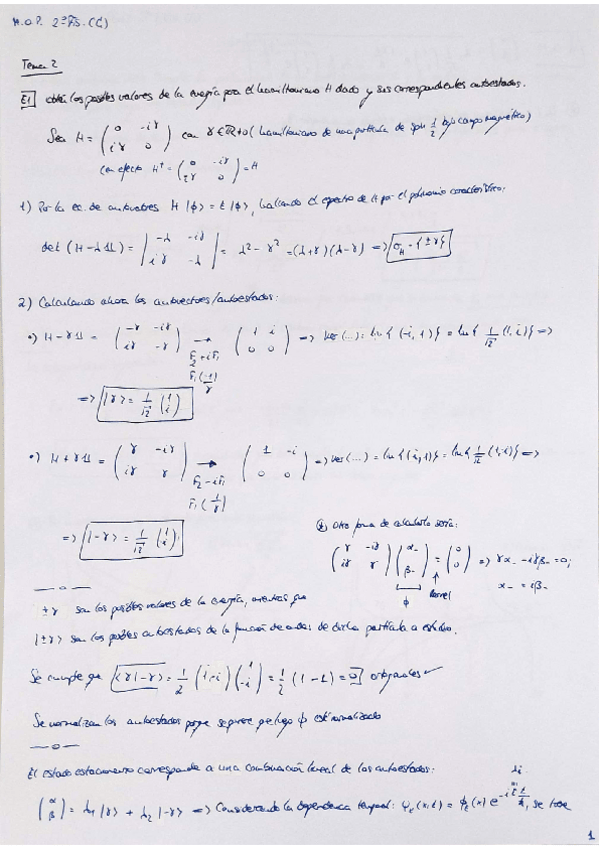 M.O.P. 2º FS. (C)
Tema 2
E1 obtén los posibles valores de la energía para el hamiltoniano H dado y sus correspondientes autoestados.
Sea H = ( 0 -iγ ; iγ 0 ) con γ ∈ ℝ≠0 (hamiltoniano de una partícula de spin 1/2 bajo campo magnético)
En efecto H† = ( 0 -iγ ; iγ 0 ) = H
1) Por la ec. de autovalores H|ϕ> = E|ϕ>, hallando el espectro de H por el polinomio característico:
det (H-λ1) = | -λ -iγ ; iγ -λ | = λ² - γ² = (λ+γ)(λ-γ) => σ_H = {±γ}
2) Calculando ahora los autovectores/autoestados:
•) H-γ1 = ( -γ -iγ ; iγ -γ ) → ( 1 i ; 0 0 ) => ker (...) = lin{(-i,1)} = lin{ 1/√2 (1,i)} =>
F₂+iF₁
F₁(-1/γ)
=> |γ> = 1/√2 ( 1 ; i )
•) H+γ1 = ( γ -iγ ; iγ γ ) → ( 1 -i ; 0 0 ) => ker (...) = lin{(i,1)} = lin{ 1/√2 (1,-i)} =>
F₂-iF₁
F₁(1/γ)
=> |-γ> = 1/√2
Otra forma de calcularlo sería:
( γ -iγ ; iγ γ ) ( α₋ ; β₋ ) = ( 0 ; 0 ) => γα₋ - iγβ₋ = 0;
ϕ kernel α₋ = iβ₋
±γ son los posibles valores de la energía, mientras que
|±γ> son los posibles autoestados de la función de ondas de dicha partícula a estudio.
Se cumple que <γ|-γ> = 1/2 (1,-i) ( 1 ; -i ) = 1/2 (1-1) = 0 ortogonales ✓
Se normalizan los autoestados porque se quiere que luego ϕ esté normalizado
El estado estacionario corresponde a una combinación lineal de los autoestados:
( α ; β ) = λ₁ |γ> + λ₂ |-γ> => Considerando la dependencia temporal: se tiene
1